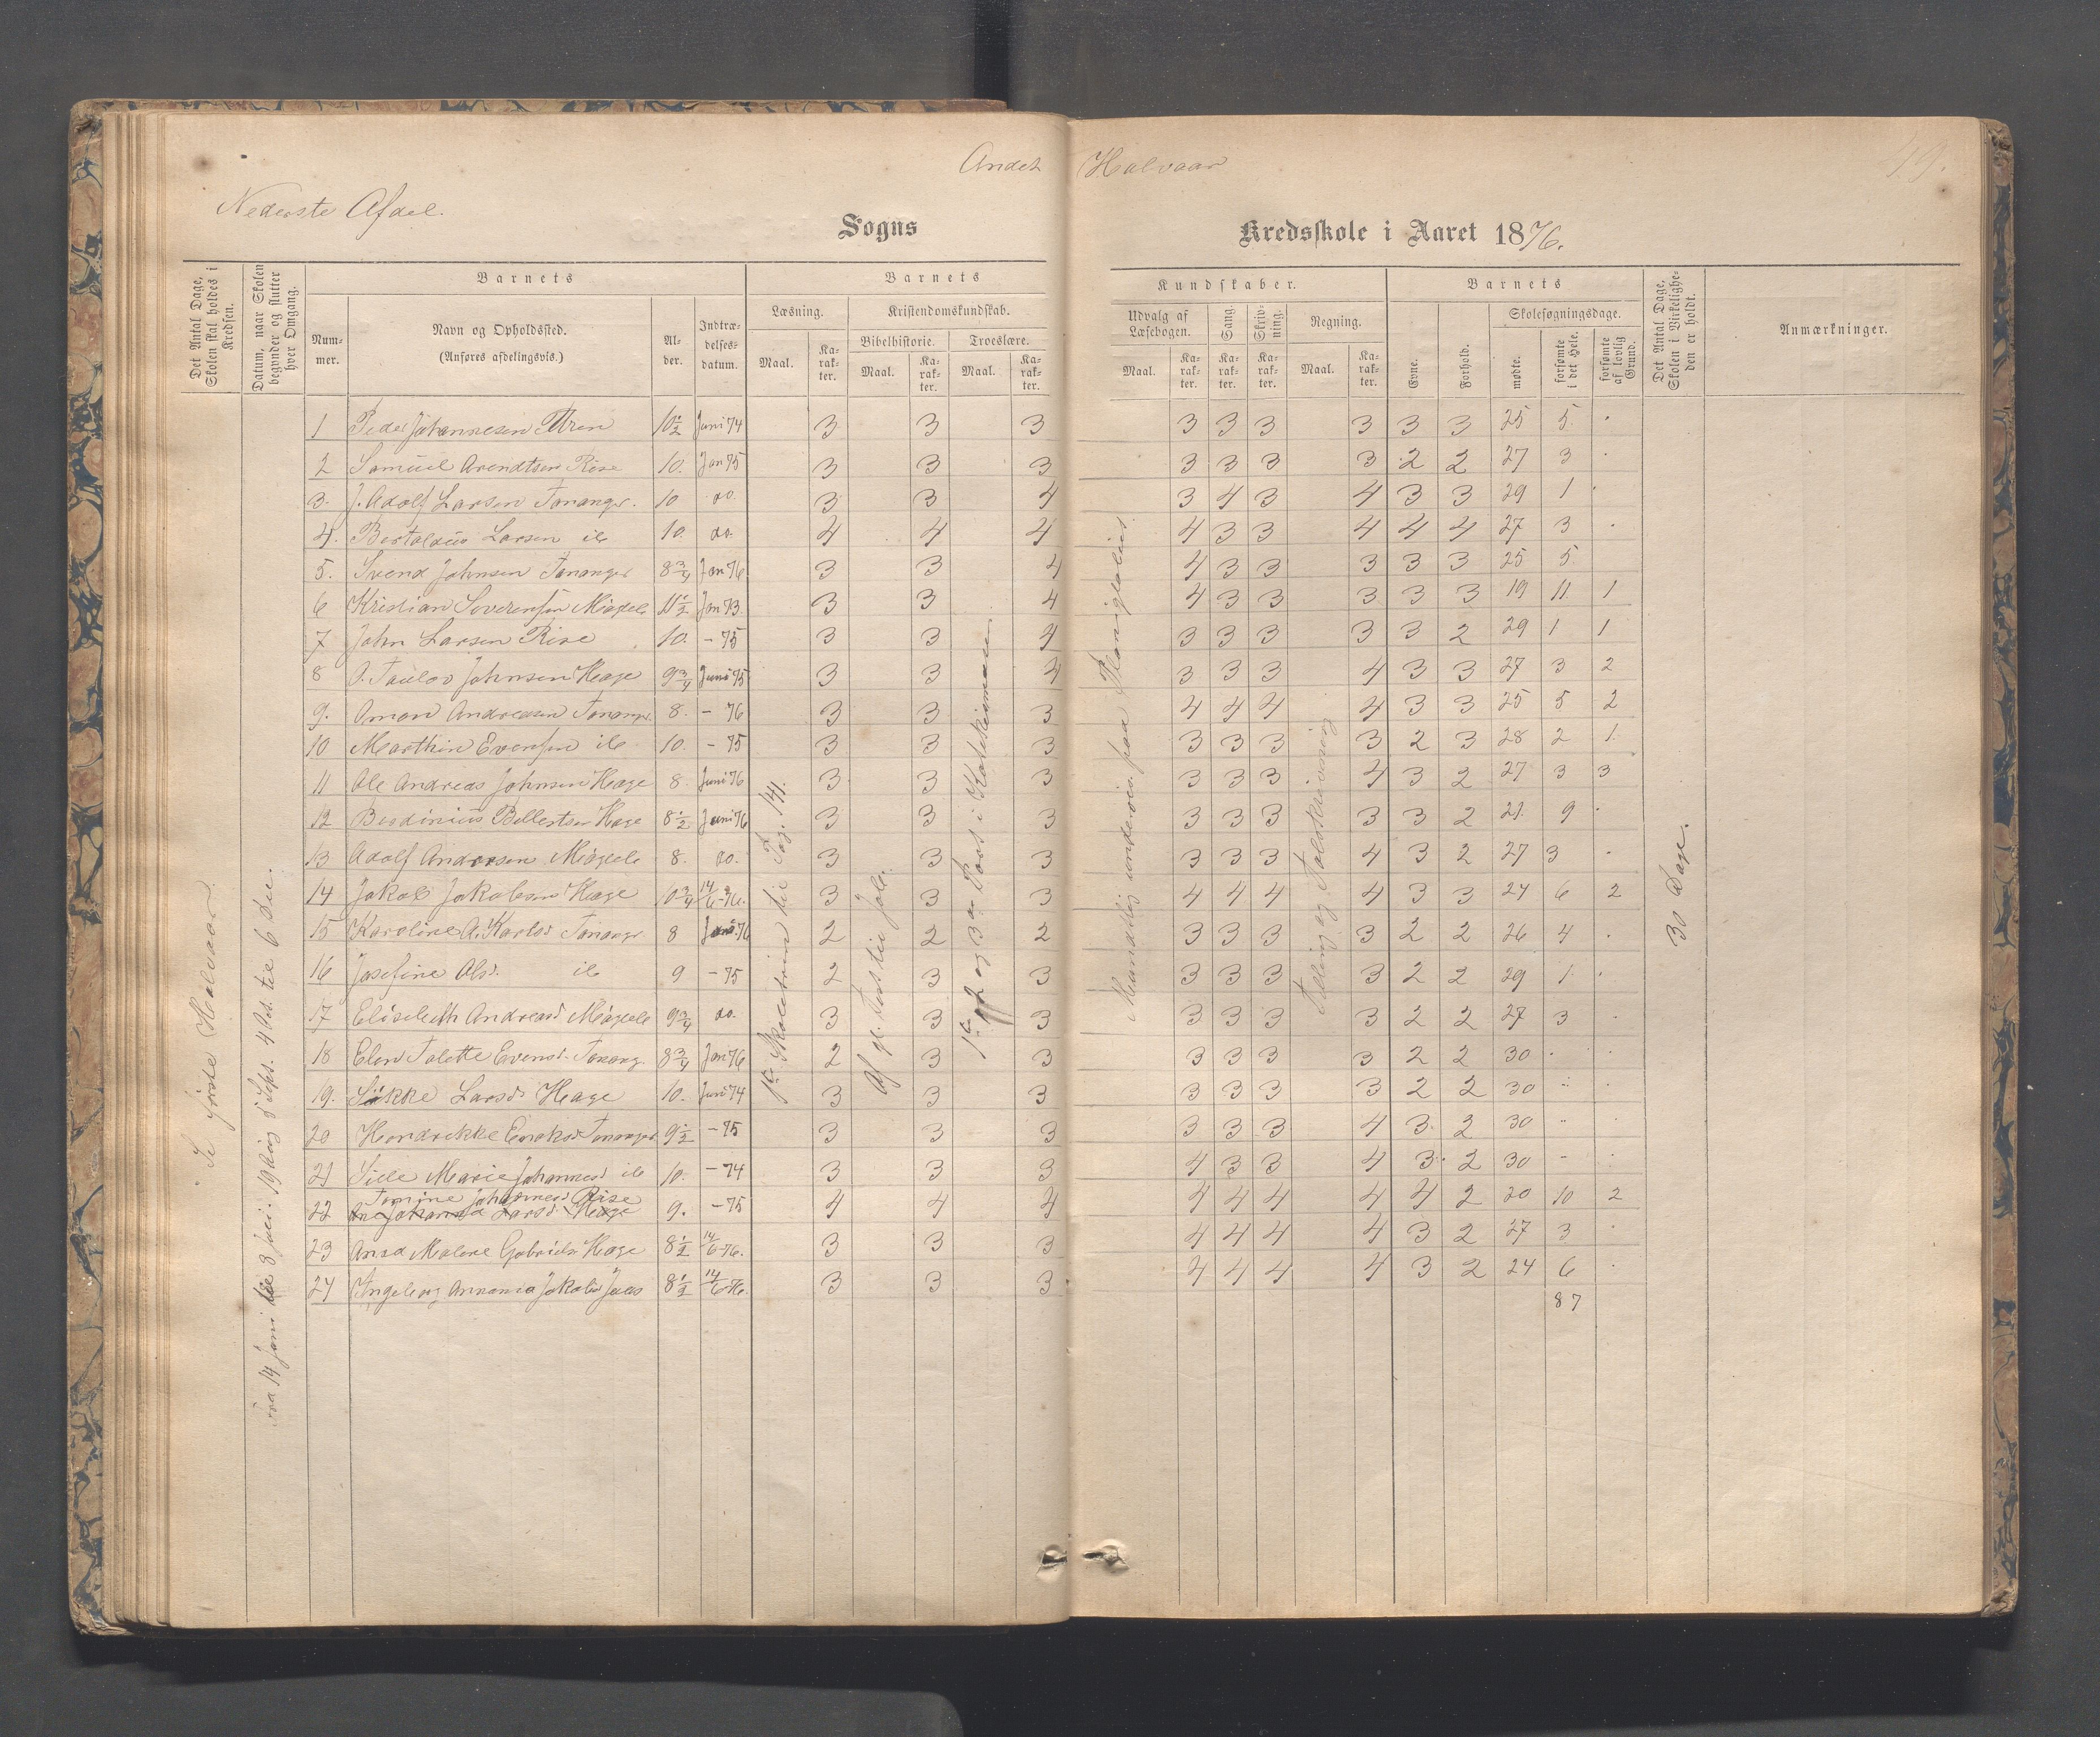 Andet Halvaar
Nederste Afdel.
Sogns Kredsskole i Aaret 1876.
Det Antal Dage, Skolen skal holdes i Kredsen.
Datum, naar Skolen begynder og slutter hver Omgang.
Barnets
Num-mer.
Navn og Opholdssted.
(Anføres afdelingsvis.)
Al-der.
Indtræ-delses-datum.
Barnets
Læsning.
Maal.
Ka-rak-ter.
Kristendomskundskab.
Bibelhistorie.
Maal.
Ka-rak-ter.
Troeslære.
Maal.
Ka-rak-ter.
Kundskaber.
Udvalg af Læsebogen.
Maal.
Ka-rak-ter.
Sang.
Ka-rak-ter.
Skriv-ning.
Ka-rak-ter.
Regning.
Maal.
Ka-rak-ter.
Barnets
Evne.
Forhold.
Skolesøgningsdage.
mødte.
forsømte i det Hele.
forsømte af lovlig Grund.
Det Antal Dage, Skolen i Virkelighe-den er holdt.
Anmærkninger.
Se første Halvaar.
fra 14 Juni til 8 Juli. 19 Aug 8 Sept. 4 Oct. til 6 Dec.
af gl. Test til Job.
Tælling og Talskrivning
30 Dage.
1 Peder Johannesen 10½ Juni 74 3 3 3 3 3 3 3 3 3 25 5 .
2 Samuel Arendtsen Rise 10. Jan 75 3 3 3 3 3 3 3 2 2 27 3 .
3. J. Adolf Larsen Tananger. 10 do. 3 3 4 3 4 3 4 3 3 29 1 .
4. Bertalius Larsen ib 10. do. 4 4 4 4 3 3 4 4 4 27 3 .
5. Svend Johnsen Tananger 8¾ Jan 76. 3 3 4 4 3 3 3 3 3 25 5
6 Kristian Severensen Miøgele 11½ Jan 73. 3 3 4 4 3 3 3 3 3 19 11 1
7 John Larsen Rise 10. - 75 3 3 4 3 3 3 3 3 2 29 1 1
8 O. Taulov Johnsen Hage 9¾ Juni 75 3 3 4 3 3 3 4 3 3 27 3 2
9. Oman Andreasen Tananger. 8. - 76 3 3 3 4 4 4 4 3 3 25 5 2
10 Marthin Evensen ib 10. - 75 3 3 3 3 3 3 3 2 3 28 2 1.
11 Ole Andreas Johnsen Hage 8. Juni 76 3 3 3 3 3 3 4 3 2 27 3 3
12 Berdinius Bellertsen Hage 8½ Juni 76 3 3 3 3 3 3 3 3 2 21. 9 .
13 Adolf Andersen Miøgele 8. do. 3 3 3 3 3 3 4 3 2 27 3 .
14 Jakob Jakobsen Hage 10¾ 14/6-76. 3 3 3 4 4 4 4 3 3 24 6 2
15 Karoline A. Karlsd Tananger 8 Juni 76 2 2 2 3 3 3 3 2 2 26 4 .
16 Josefine Olsd. ib 9 - 75 2 3 3 3 3 3 3 2 2 29 1. .
17 Elisebeth Andreasd Miøgele 9¾ do. 3 3 3 3 3 3 3 2 2 27 3 .
18 Elen Talette Evensd. Tanang. 8¾ Jan 76 2 3 3 3 3 3 3 2 2 30 . .
19. Sikke Larsd Hage 10. Juni 74 3 3 3 3 3 3 3 2 2 30 .. .
20 Hendrikke Enoksd Tananger 9½ - 75 3 3 3 3 3 3 4 3. 2 30 .. .
21 Sille Marie Johannesd ib 10. - 74 3 3 3 4 3 3 4 3. 2 30 - .
Tomine Johannesd Rise
22 Ane Johanna Larsd Hage 9. - 75 4 4 4 4 4 4 4 4 2 20 10 2
23 Anna Malene Gabrielsd Hage 8½ 14/6-76. 3 3 3 4 4 4 4 3 2 27 3 .
24 Ingeborg Annania Jakobsd 8½ 14/6-76. 3 3 3 4 4 4 4 3 2 24 6 .
87